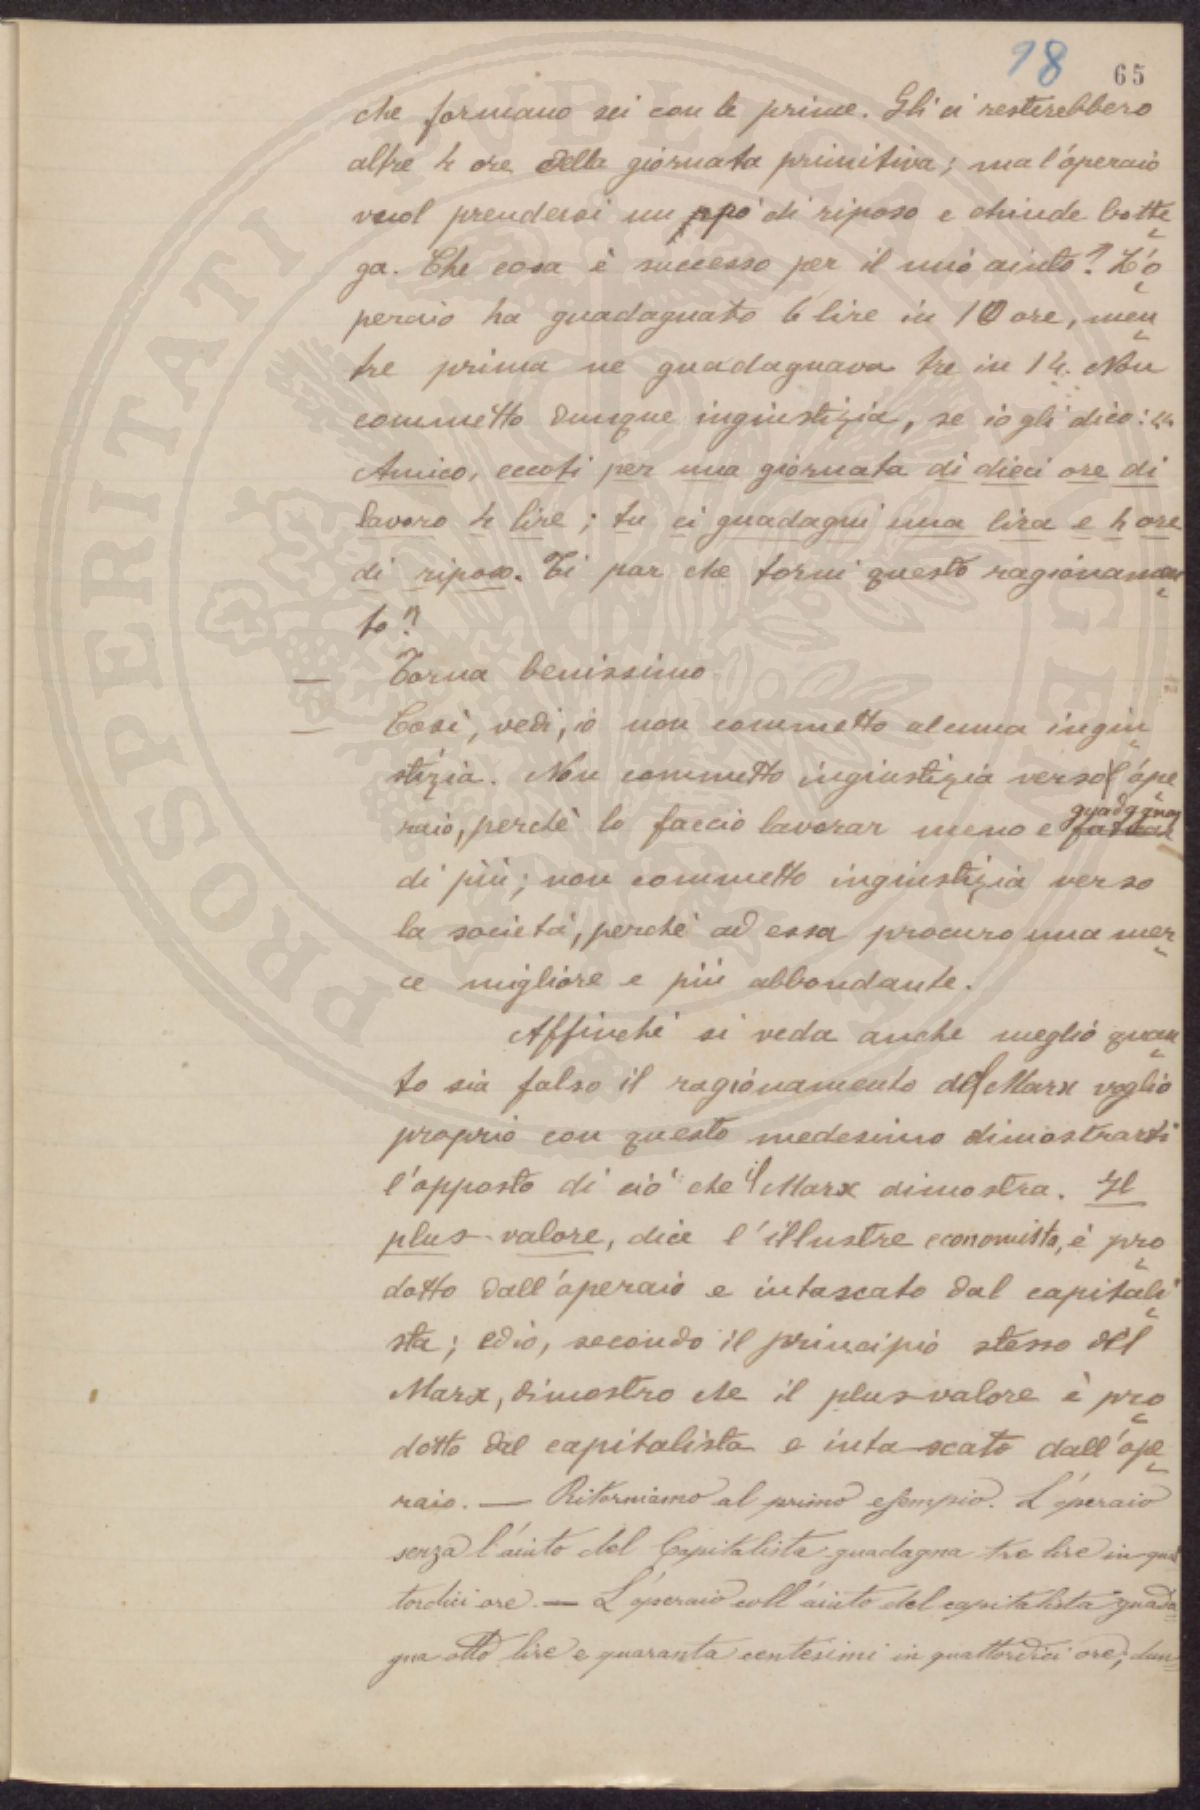 98 65
che formano sei con le prime. Gli ci resterebbero
altre 4 ore della giornata primitiva; ma l'operaio
vuol prendersi un ppo' di riposo e chiude botte
ga. Che cosa è successo per il mio aiuto? L'o
peraio ha guadagnato 6 lire in 10 ore, men
tre prima ne guadagnava tre in 14. Non
commetto dunque ingiustizia, se io gli dico: "
Amico, eccoti per una giornata di dieci ore di
lavoro 4 lire; tu ci guadagni una lira e 4 ore
di riposo. Ti par che torni questo ragionamen
to?
— Torna benissimo
— Così, vedi, io non commetto alcuna ingiu
stizia. Non commetto ingiustizia verso l'ope
raio, perchè lo faccio lavorar meno e guadagnar
di più; non commetto ingiustizia verso
la società, perchè ad essa procuro una mer
ce migliore e più abbondante.
Affinchè si veda anche meglio quan
to sia falso il ragionamento del Marx voglio
proprio con questo medesimo dimostrarti
l'opposto di ciò che il Marx dimostra. Il
plus-valore, dice l'illustre economista, è pro
dotto dall'operaio e intascato dal capitali
sta; ed io, secondo il principio stesso del
Marx, dimostro che il plus-valore è pro
dotto dal capitalista e inta-scato dall'ope
raio. — Ritorniamo al primo esempio. L'operaio
senza l'aiuto del Capitalista guadagna tre lire in quat
tordici ore. — L'operaio coll'aiuto del capitalista guada-
gna otto lire e quaranta centesimi in quattordici ore; dun-
PROSPERITATI PUBLICAE AUGENDAE